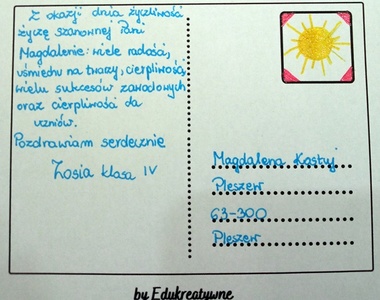 Z okazji dnia życzliwości
życzę szanownej Pani
Magdalenie: wiele radości,
uśmiechu na twarzy, cierpliwości,
wielu sukcesów zawodowych
oraz cierpliwości do
uzniów.
Pozdrawiam serdecznie
Zosia klasa IV
Magdalena Kostyj
Pleszew
63-300
Pleszew
by Edukreatywne